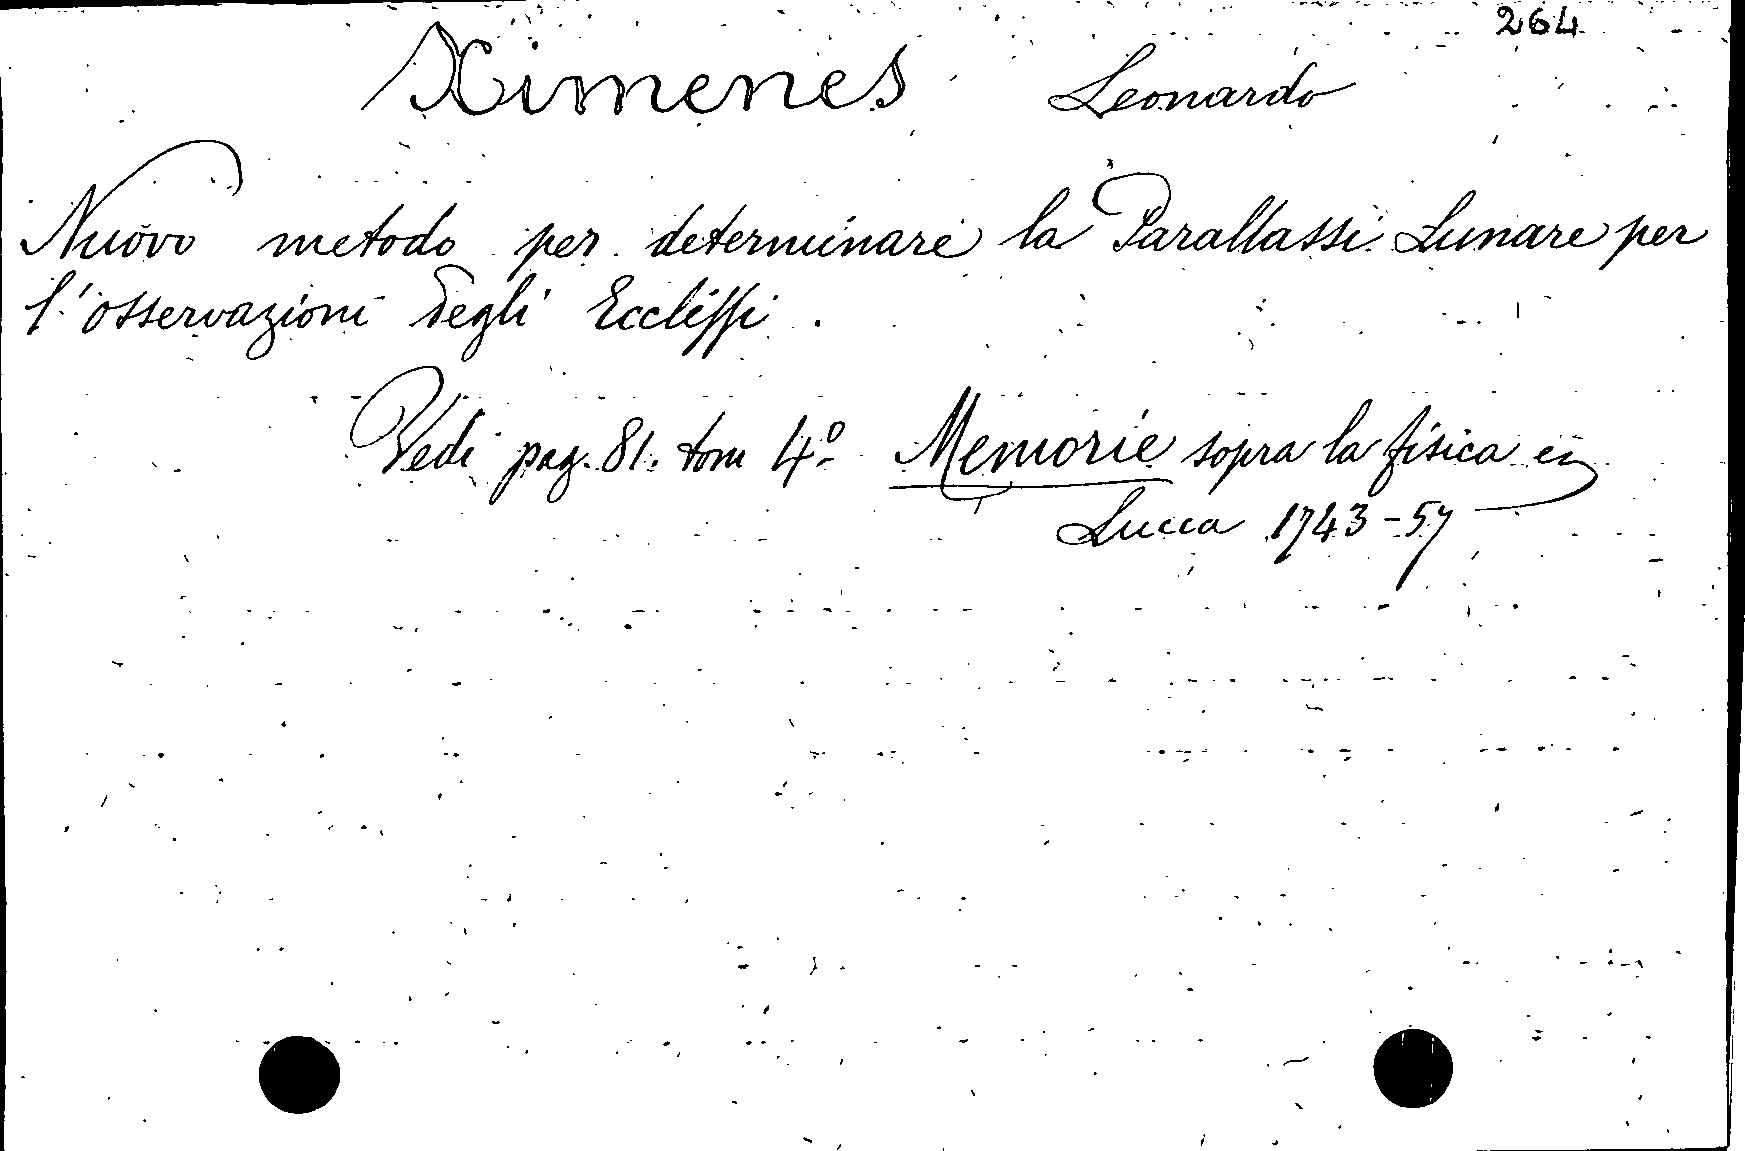 264
Ximenes Leonardo
Nuovo metodo per determinare la Parallassi Lunare per
l'osservazioni degli Ecclissi.
Vedi pag. 81. tom 4º Memorie sopra la fisica
Lucca 1743-57